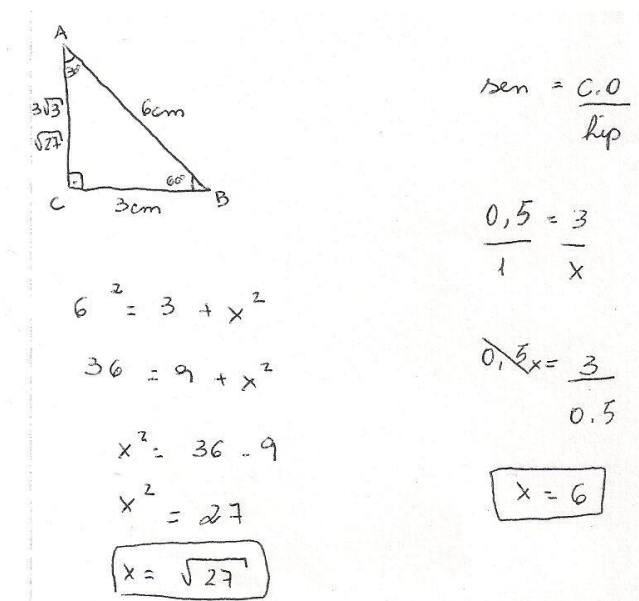 A
30°
3√3
√27
6cm
60°
C
B
3cm
6² = 3 + x²
36 = 9 + x²
x² = 36 - 9
x² = 27
x = √27
sen = C.O
hip
0,5 = 3
1 x
0,5x = 3
0.5
x = 6